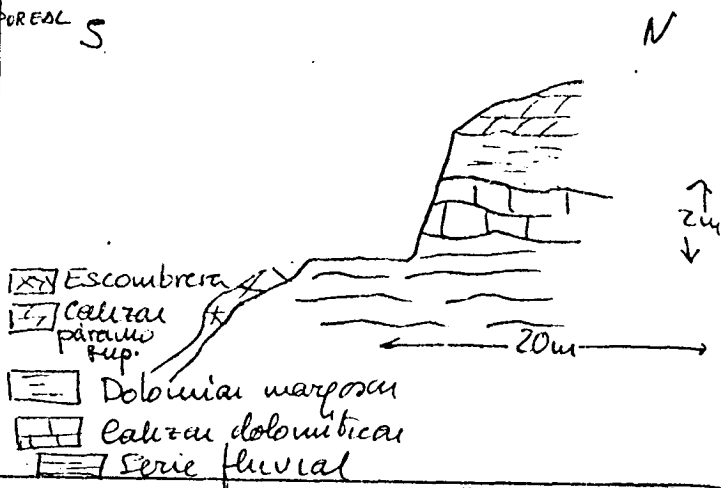 POREAL
S N
2m
20m
Escombrera
Calizas
páramo
sup.
Dolomias margosas
Calizas dolomiticas
Serie fluvial